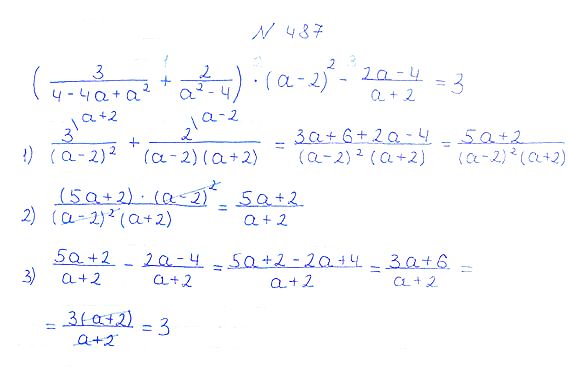 N 437
( 3/(4-4a+a²) + 2/(a²-4) ) · (a-2)² - (2a-4)/(a+2) = 3
1) 3\a+2/(a-2)² + 2\a-2/((a-2)(a+2)) = (3a+6+2a-4)/((a-2)²(a+2)) = (5a+2)/((a-2)²(a+2))
2) ((5a+2)·(a-2)²)/((a-2)²(a+2)) = (5a+2)/(a+2)
3) (5a+2)/(a+2) - (2a-4)/(a+2) = (5a+2-2a+4)/(a+2) = (3a+6)/(a+2) =
= 3(a+2)/(a+2) = 3